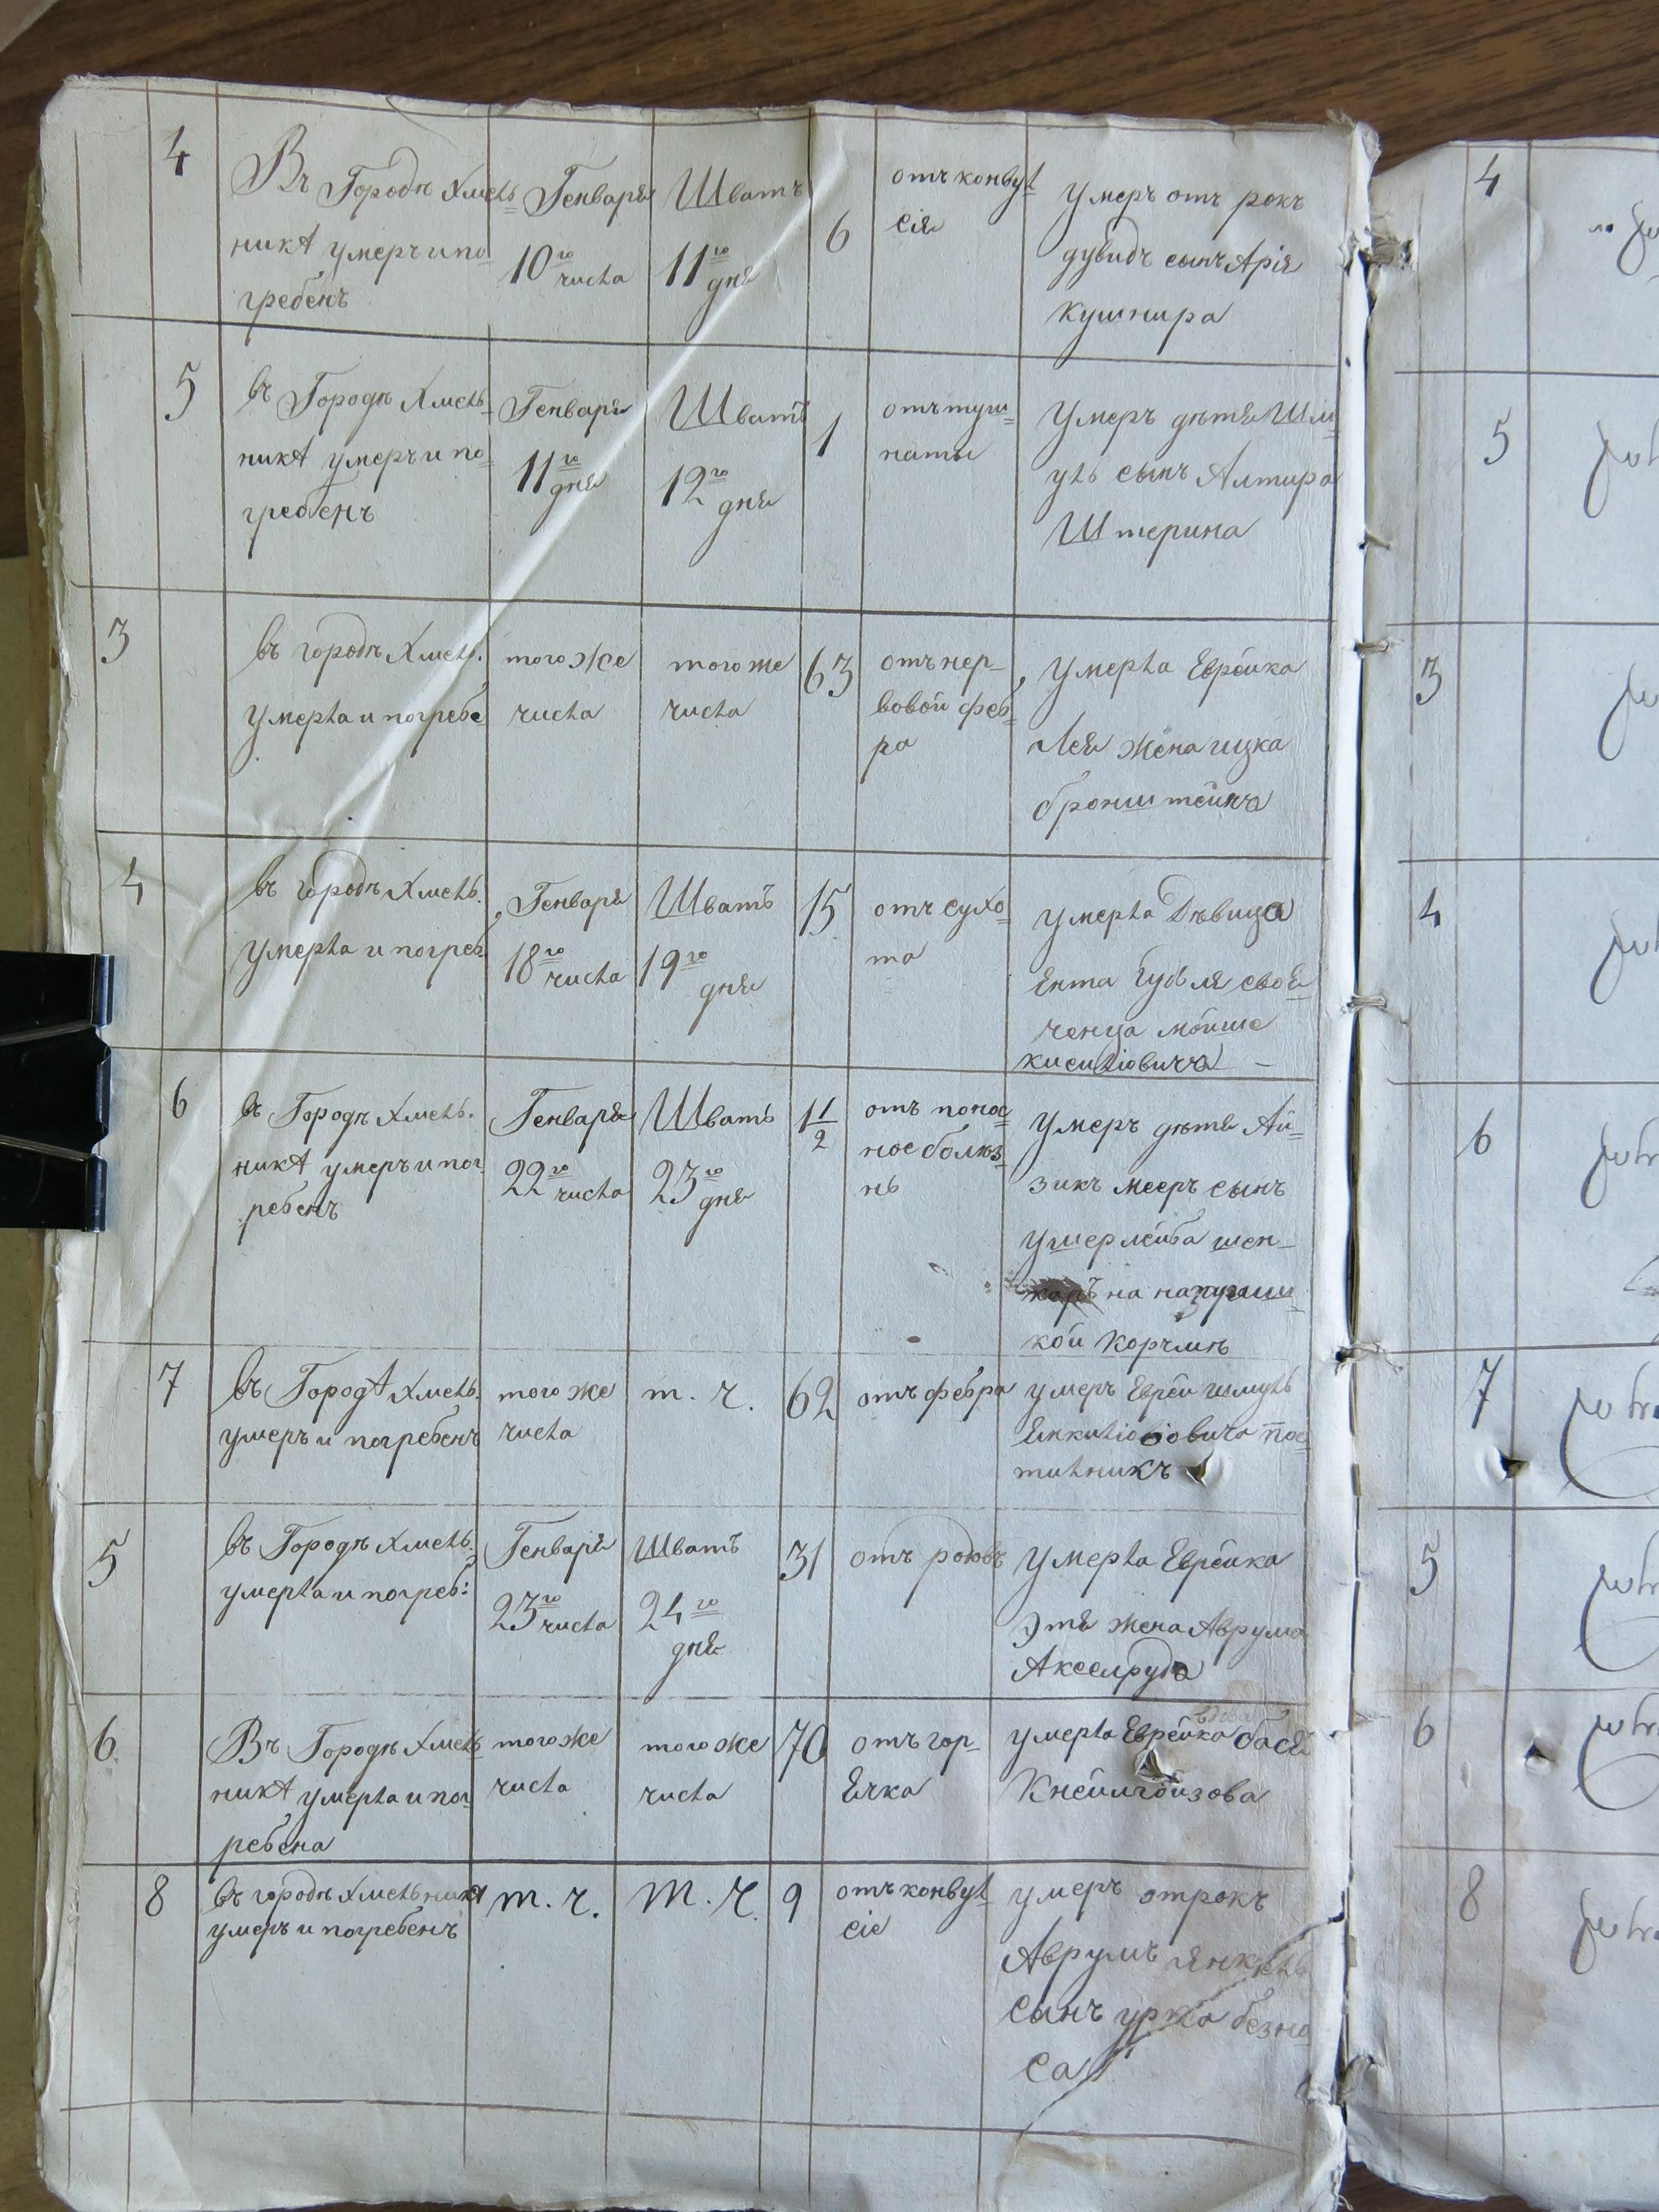 4
Въ Городѣ Хмель=
никѣ умеръ и по=
гребенъ
Генваря
10го числа
Шватъ
11го дня
6
отъ конвул=
сія
Умеръ отрокъ
дувидъ сынъ Арія
Кушнира
5
въ Городѣ Хмель=
никѣ умеръ и по=
гребенъ
Генваря
11го дня
Шватъ
12го дня
1
Умеръ дѣтя Шм=
уль сынъ Алтира
Штерина
3
въ городѣ Хмель.
умерла и погребе
того же
числа
того же
числа
63
отъ нер=
вовой феб=
ра
Умерла Еврейка
Лея жена ицка
бронштейна
4
въ городѣ Хмель.
умерла и погреб.
Генваря
18го числа
Шватъ
19го дня
15
отъ сухо=
та
умерла Дѣвица
Ента Гудля своя=
ченца мойше
кисилiовича –
6
въ Городѣ Хмель.
никѣ умеръ и пог=
ребенъ
Генваря
22го числа
Шватъ
23го дня
1 1/2
отъ понос
ное болѣз=
нь
Умеръ дѣтя Ай=
зикъ мееръ сынъ
ушерлейба шен=
каръ на
кой корчмѣ
7
въ Городѣ Хмель.
умеръ и погребенъ
того же
числа
т. ч.
62
отъ фебра
умеръ Еврей шмуль
тильникъ
5
въ Городѣ Хмель.
умерла и погреб:
Генваря
23го числа
Шватъ
24го
дня
31
отъ родовъ
Умерла Еврейка
Этя жена Аврума
Акселруда
6
Въ Городѣ Хмель=
никѣ умерла и пог=
ребена
того же
числа
того же
числа
70
отъ гор=
ячка
вдова
умерла Еврейка бася
Кнеймгойзова
8
въ городѣ Хмельникѣ
умеръ и погребенъ
т. ч.
т. ч.
9
отъ конвул=
сіе
умеръ отрокъ
Аврумъ янкель
сынъ безно
са
4
5
3
4
6
7
5
6
8